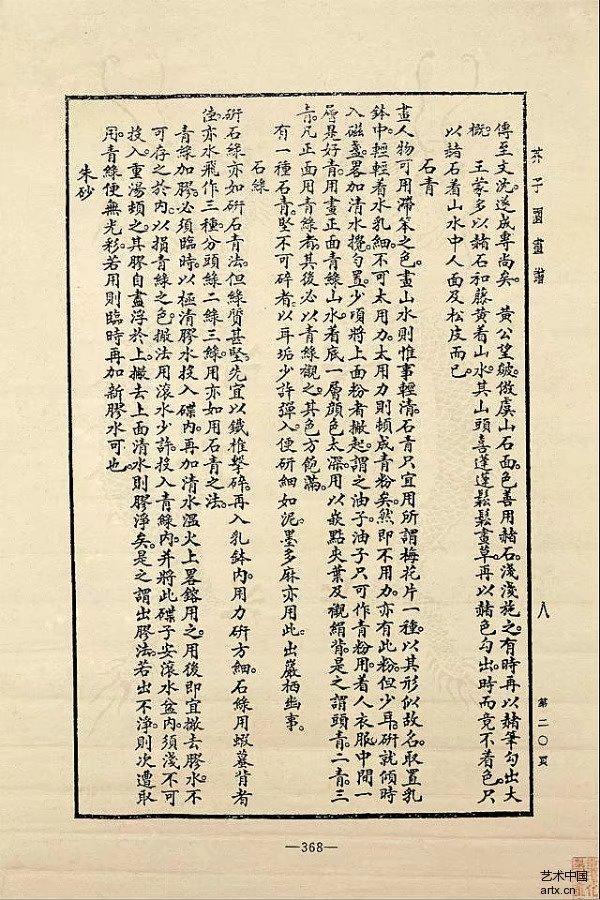 芥子園畫譜
八
第二〇頁
傳至文沈遂成專尚矣。 黃公望皴倣虞山石面。色善用赭石。淺淺施之。有時再以赭筆勾出大
概。 王蒙多以赭石和藤黃着山水。其山頭喜蓬蓬鬆鬆畫草。再以赭色勾出。時而竟不着色。只
以赭石着山水中人面及松皮而已。
石青
畫人物可用滯笨之色。畫山水則惟事輕清。石青只宜用所謂梅花片一種。以其形似故名。取置乳
鉢中。輕輕着水乳細。不可太用力。太用力則頓成青粉矣。然即不用力。亦有此粉。但少耳。研就傾時
入磁盞。畧加清水攪勻。置少頃。將上面粉者撇起。謂之油子。油子只可作青粉用。着人衣服。中間一
層是好青。用畫正面青綠山水。着底一層顏色太深。用以嵌點夾葉及襯絹背。是之謂頭青二青三
青。凡正面用青綠者。其後必以青綠襯之。其色方飽滿。
有一種石青。堅不可碎者。以耳垢少許彈入。便研細如泥。墨多麻亦用此。出巖栖幽事。
石綠
研石綠亦如研石青法。但綠質甚堅。先宜以鐵椎擊碎。再入乳鉢內。用力研方細。石綠用蝦蟇背者
佳。亦水飛作三種。分頭綠二綠三綠。用亦如用石青之法。
青綠加膠。必須臨時以極清膠水投入碟內。再加清水。溫火上畧鎔用之。用後即宜撇去膠水。不
可存之於內。以損青綠之色。撇法用滾水少許。投入青綠內。并將此碟子安滾水盆內。須淺不可
投入重湯頓之。其膠自盡浮於上。撇去上面清水。則膠淨矣。是之謂出膠法。若出不淨。則次遭取
用。青綠便無光彩。若用則臨時再加新膠水可也。
朱砂
—368—
艺术中国
artx.cn